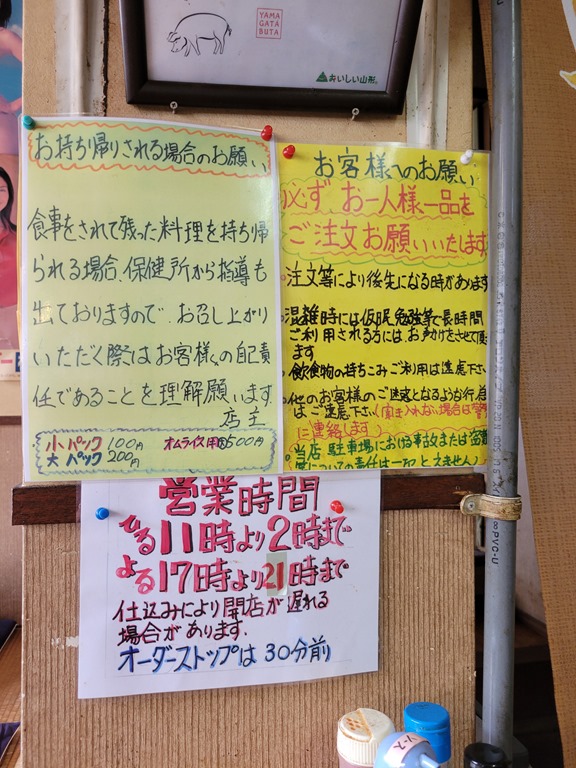 YAMA
GATA
BUTA
おいしい山形
お持ち帰りされる場合のお願い
食事をされて残った料理を持ち帰
られる場合、保健所から指導も
出ておりますので、お召し上がり
いただく際はお客様の自己責
任であることを理解願います
店主
小パック 100円 オムライス用 500円
大パック 200円
お客様へのお願い
必ずお一人様一品を
ご注文お願いいたします
注文等により後先になる時があります
混雑時には仮眠勉強等で長時間
ご利用される方にはお声かけをさせて頂き
ます
飲食物の持ちこみご利用は遠慮下さい
他のお客様のご迷惑となるような行為
はご遠慮下さい(聞き入れない場合は警察
に連絡します)
当店駐車場における事故または盗難
等についての責任は一切とえません
営業時間
ひる11時より2時まで
よる17時より21時まで
仕込みにより開店が遅れる
場合があります.
オーダーストップは30分前
ソース
PVC-U